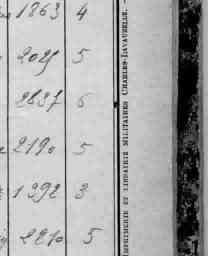 1863 4
2025 5
2837 6
2190 5
1392 3
2210 5
IMPRIMERIE ET LIBRAIRIE MILITAIRES CHARLES-LAVAUZELLE. —